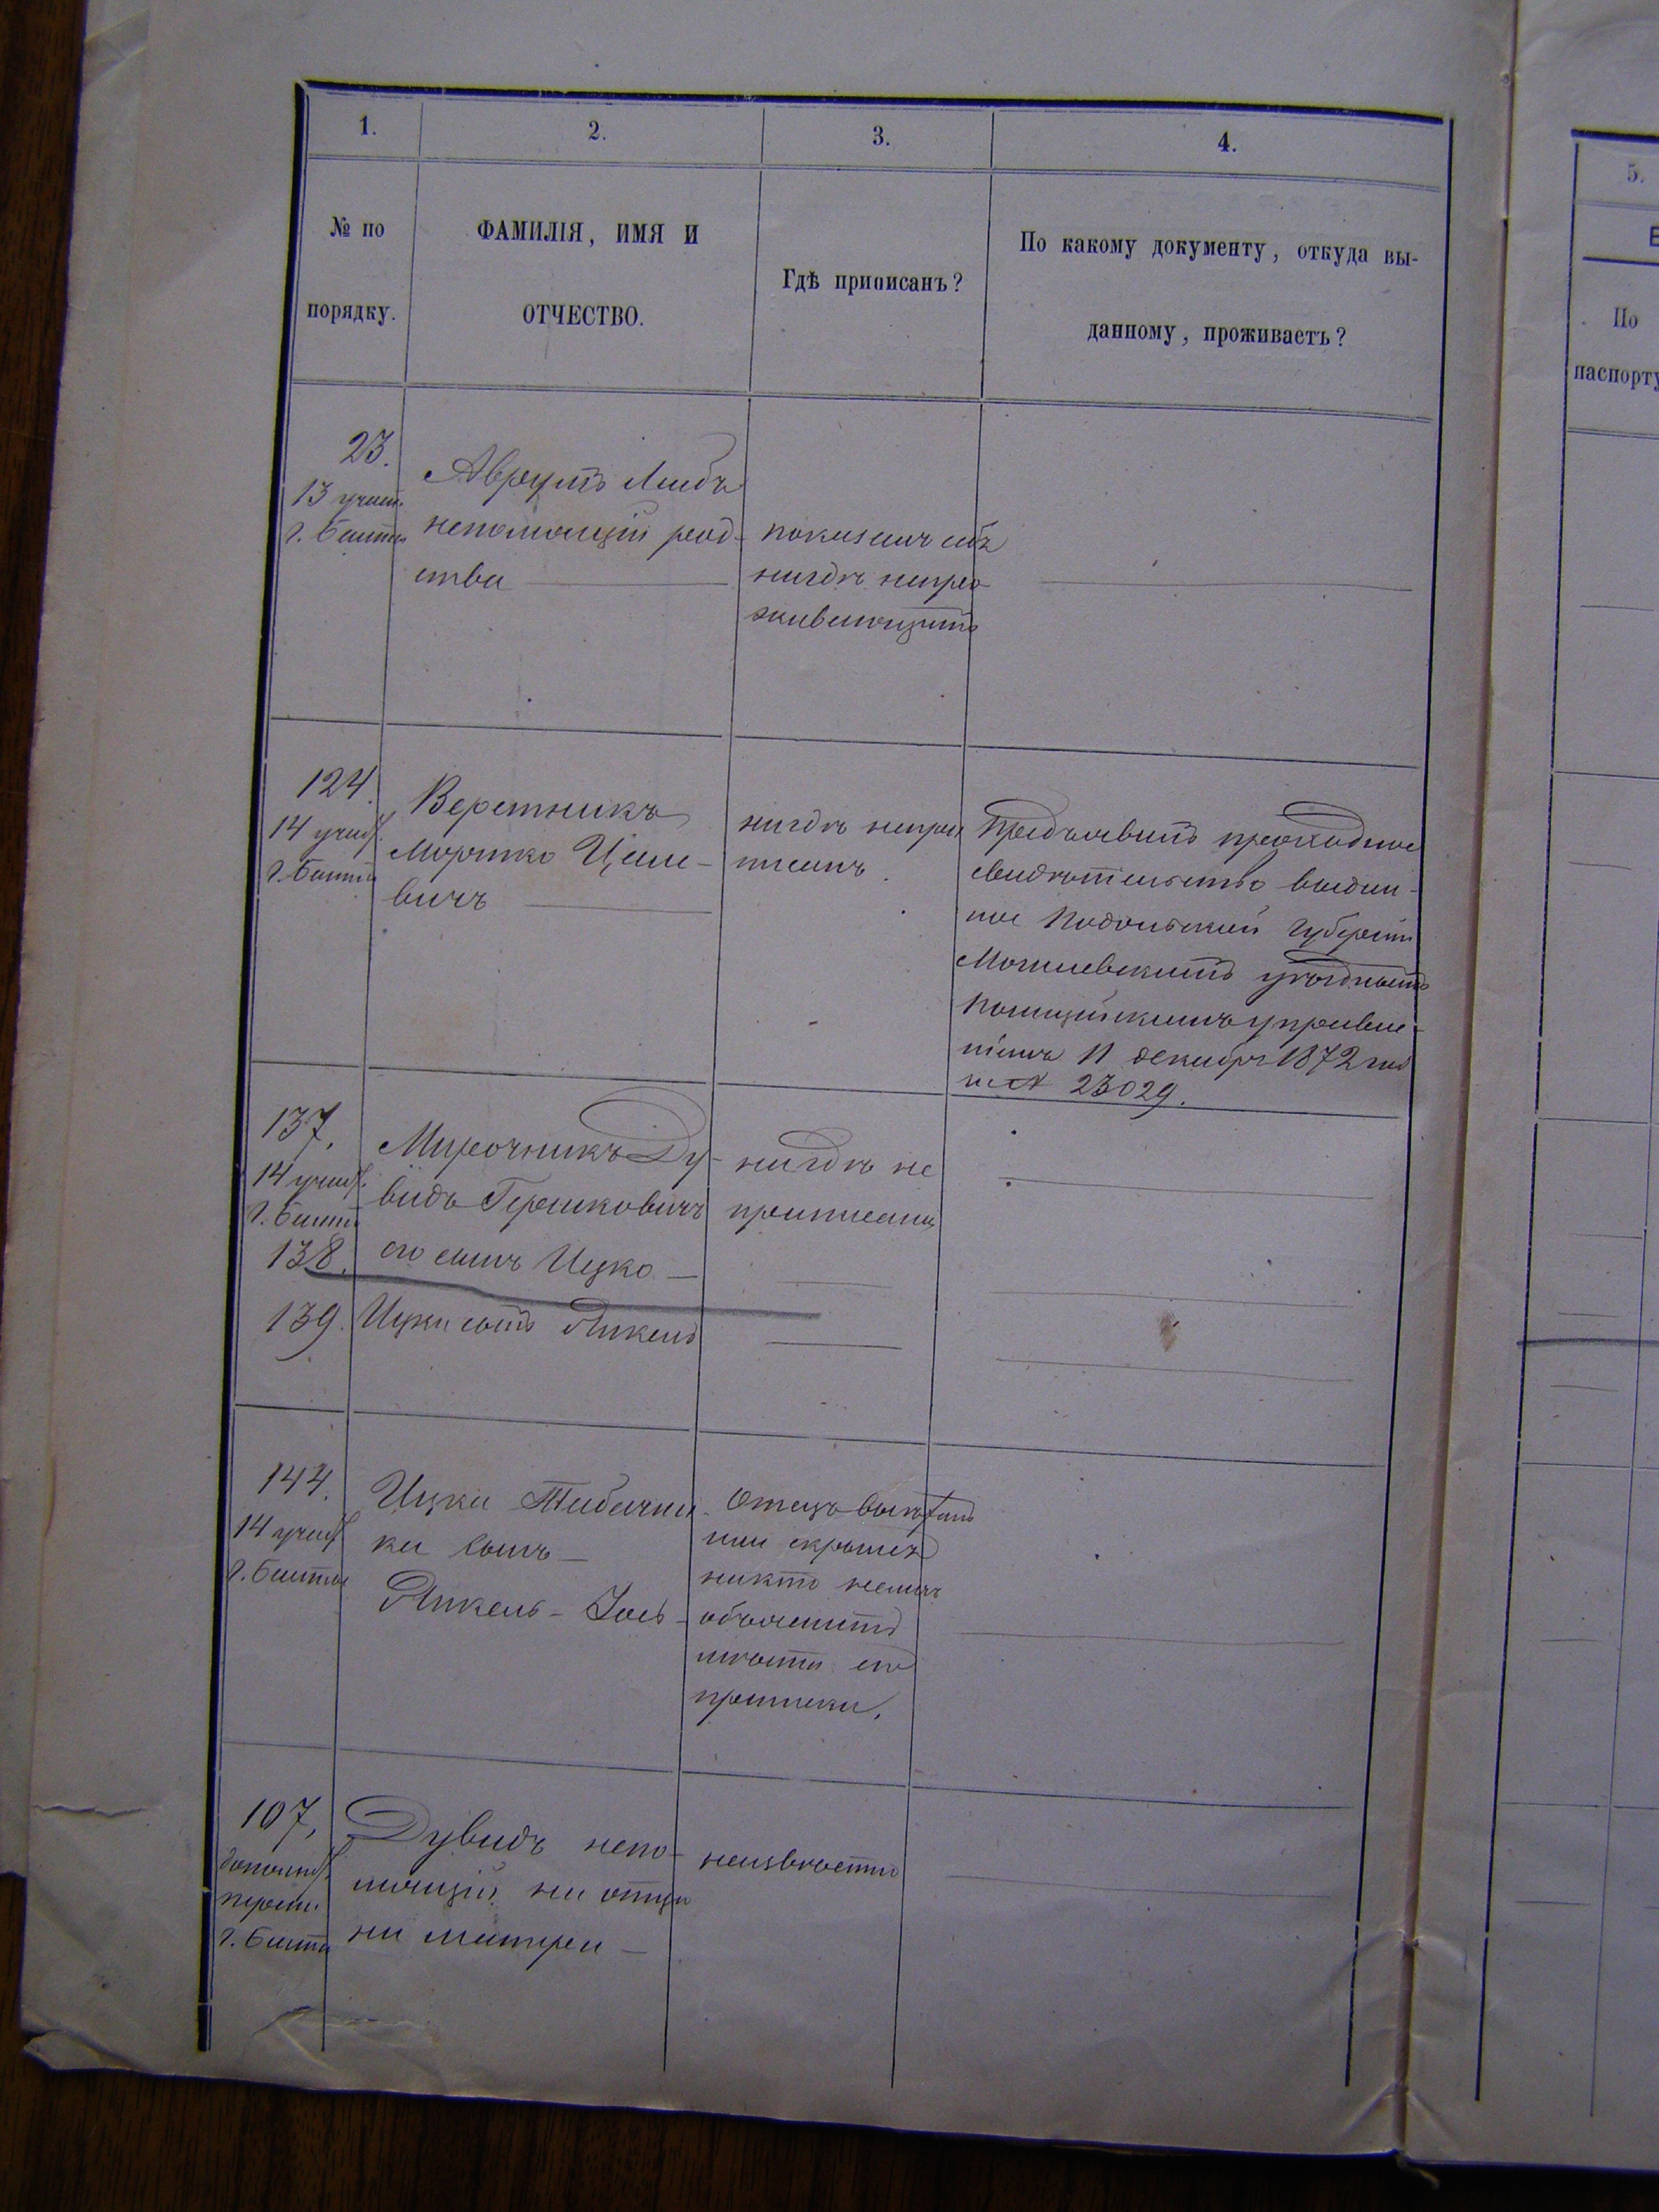 1.
2.
3.
4.
№ по
порядку.
ФАМИЛІЯ, ИМЯ И
ОТЧЕСТВО.
Гдѣ приписанъ?
По какому документу, откуда вы-
данному, проживаетъ?
23.
13 участ.
г. Балты
Аврумъ Лейбъ
непомнящій род-
ства
показалъ себя
нигдѣ непро-
живающимъ
124.
14 участ.
г. Балты
Веретникъ
Мортко
вичъ
нигдѣ непри
писанъ.
Предъявилъ проходное
свидѣтельство выдан-
ное Подольской Губерніи
Могилевскимъ уѣзднымъ
Полицейскимъ управле-
ніемъ 11 декабря 1872 года
за № 23029.
137.
14 участ.
г. Балты
Мирочникъ Ду-
видъ Гершковичъ
нигдѣ не
приписанъ
138.
его сынъ Ицко
139.
Ицки сынъ Янкель
144.
14 участ.
г. Балты
Ицки Табачни-
ка сынъ
Янкель-Іось
Отецъ
или скрылся
никто немогъ
объяснить
мѣста его
приписки.
107.
дополнит.
г. Балты
Дувидъ непо-
мнящій ни отца
ни матери
неизвѣстно
5.
По
паспорту